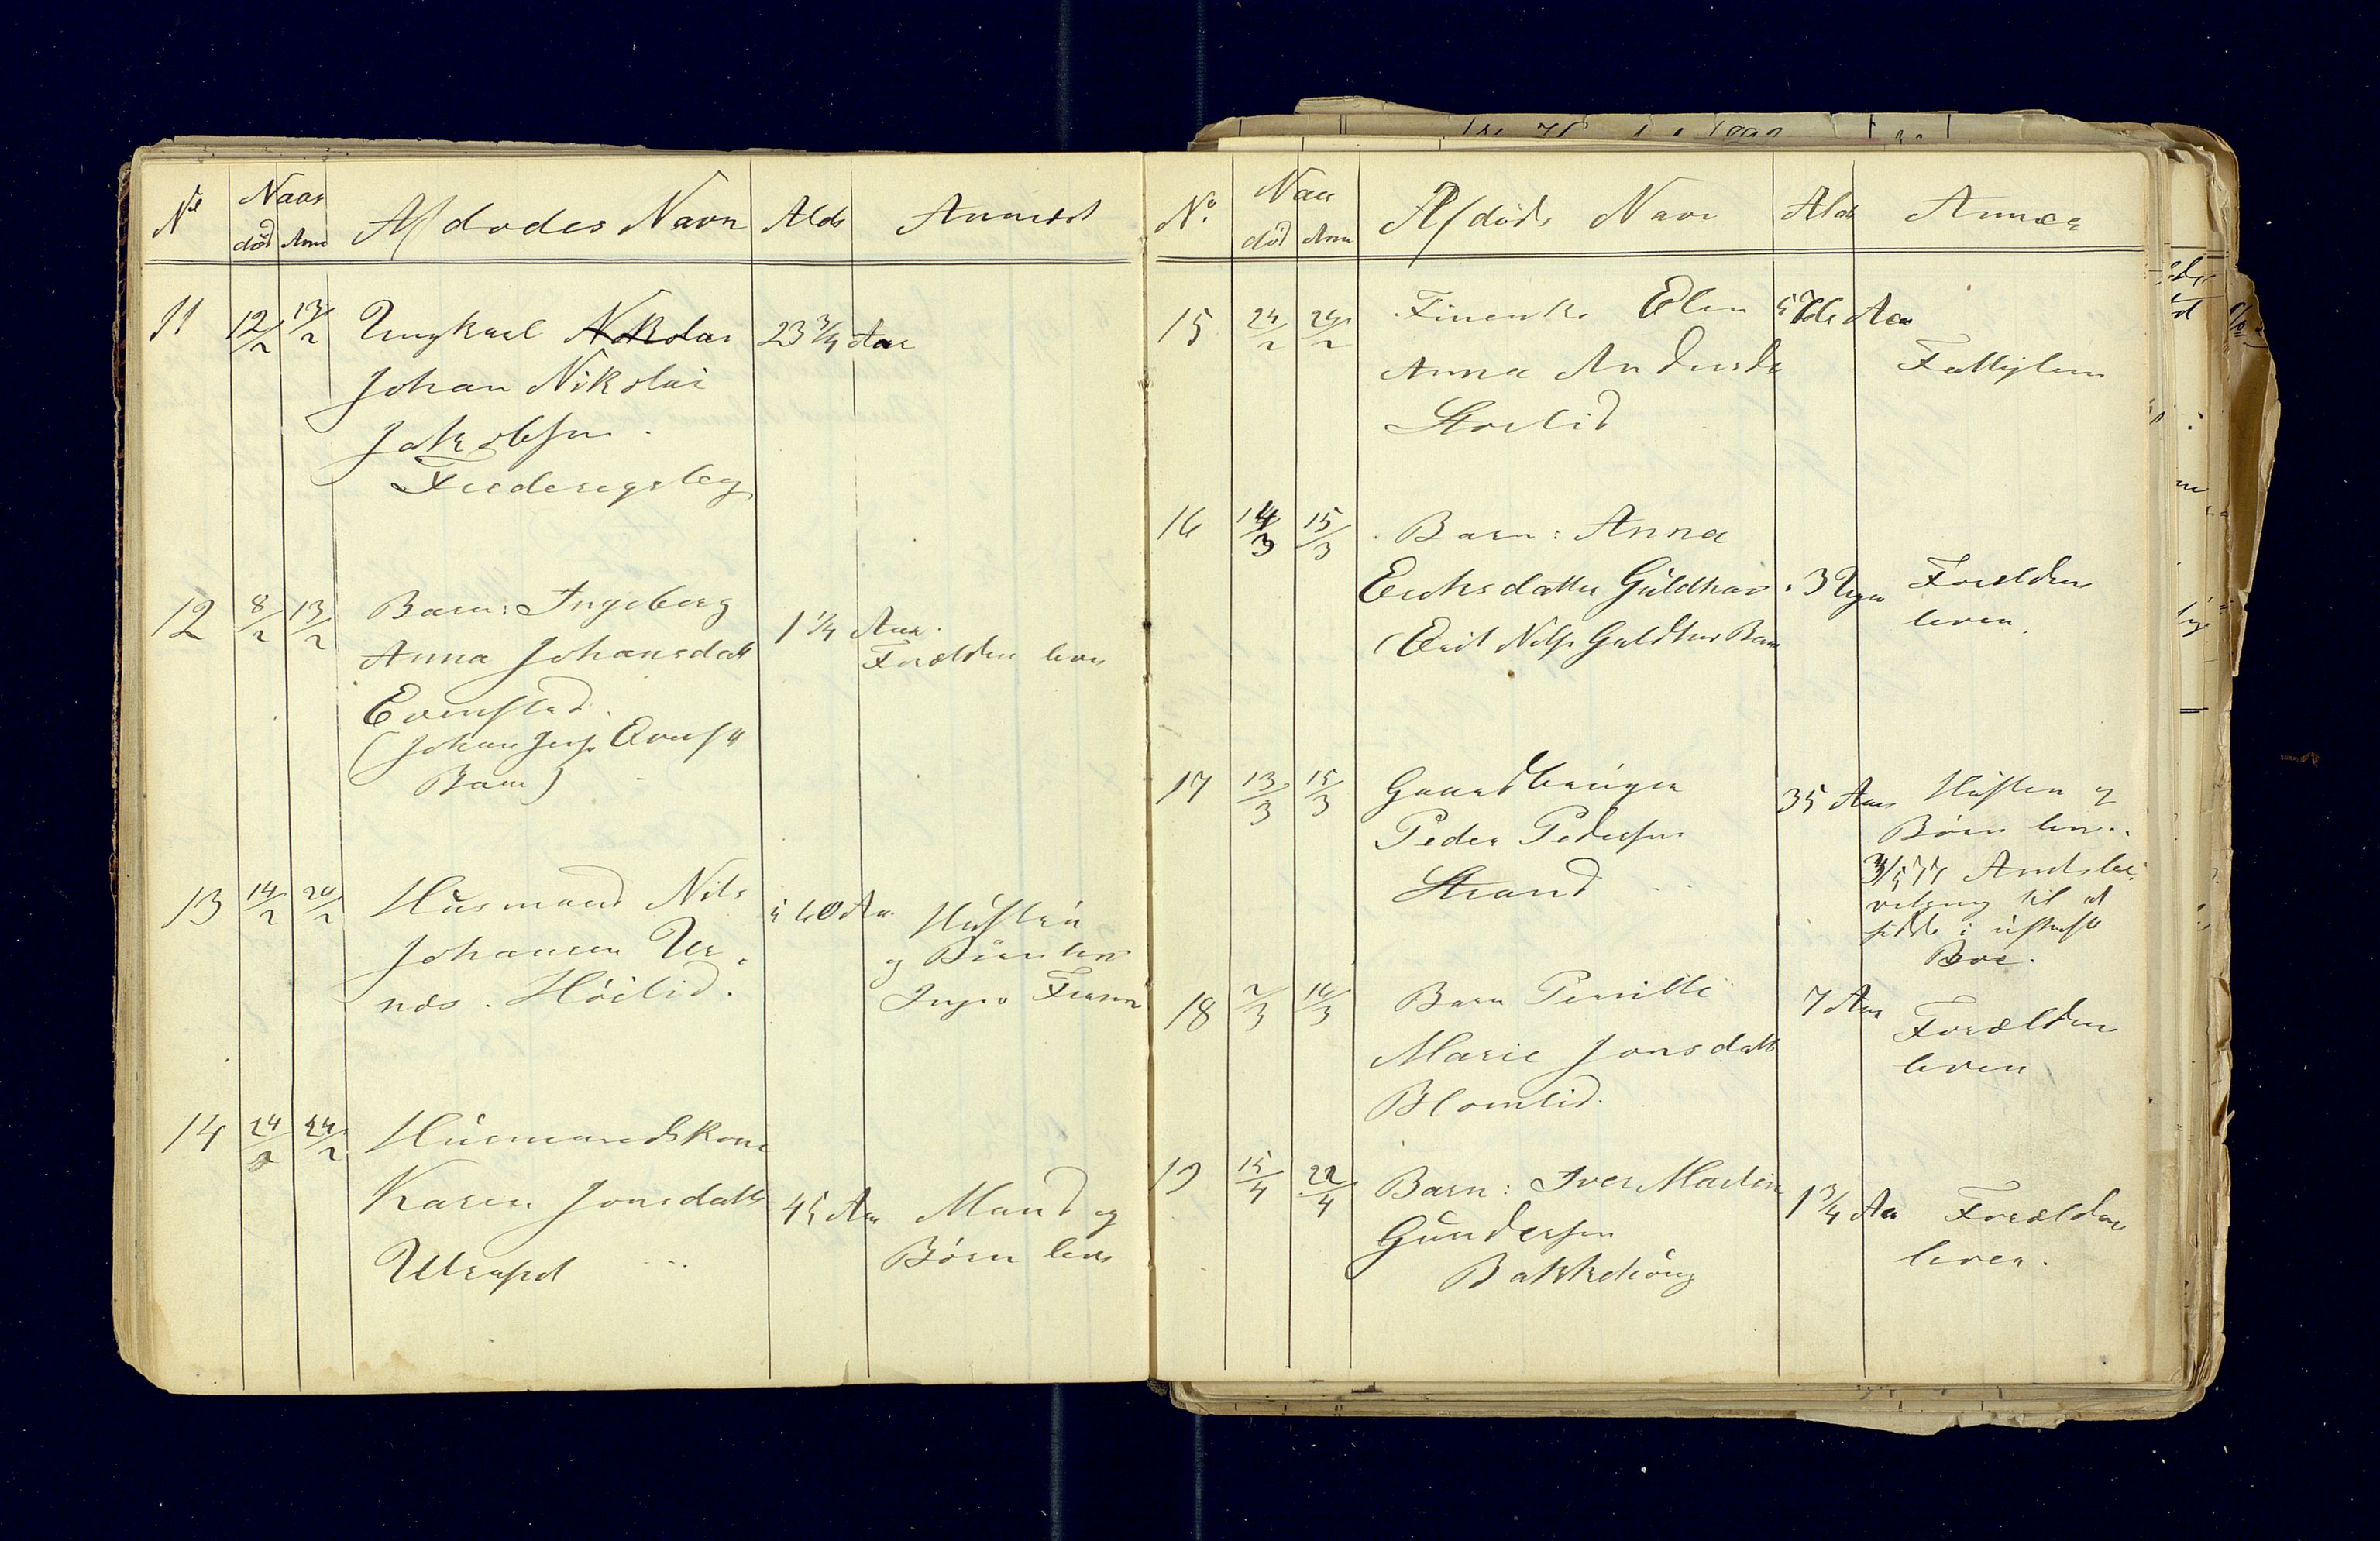 No Naar død Anm Afdødes Navn Alder Anmerk
11 12/2 13/2 Ungkarl Nikolai 23 3/4 Aar
Johan Nikolai
Jakobsen.
Frederigsberg
12 8/2 13/2 Barn: Ingeborg
Anna Johansdatt 1 1/4 Aar.
Forældre lever
Evenstad.
(Johan Jens. Evenst
Barn)
13 14/2 20/2 Husmand Nils
Johansen Ur- i 60 Aar Hustru
og Børn lever
næs. Høilid. Ingen
14 24/2 24/2 Husmandskone
Karen Jonsdatt 45 Aar Mand og
Børn leve
No. Naar død Anm Afdøde Navn Alder Anmær
15 24/2 24/2 Finenke Elen Aar
Anna Andersda Fattiglem
Storlid
16 14/3 15/3 Barn: Anna
Eriksdatter Guldhav 3 Uger Forældrene
lever.
(Erik Nils. Guldhav Barn
17 13/3 15/3 Gaardbruger
Peder Pedersen 35 Aar Hustru og
Børn lev..
Strand
Amtsbe-
vilgning til at
sidde i uskiftet
Boe.
18 2/3 16/3 Barn Pernille 7 Aar
Marie Jonsdatt Forældrene
leven
Blomlid.
19 15/4 22/4 Barn: Iver Martin
Gundersen 1 3/4 Aar Forældre
lever.
Bakkehoug